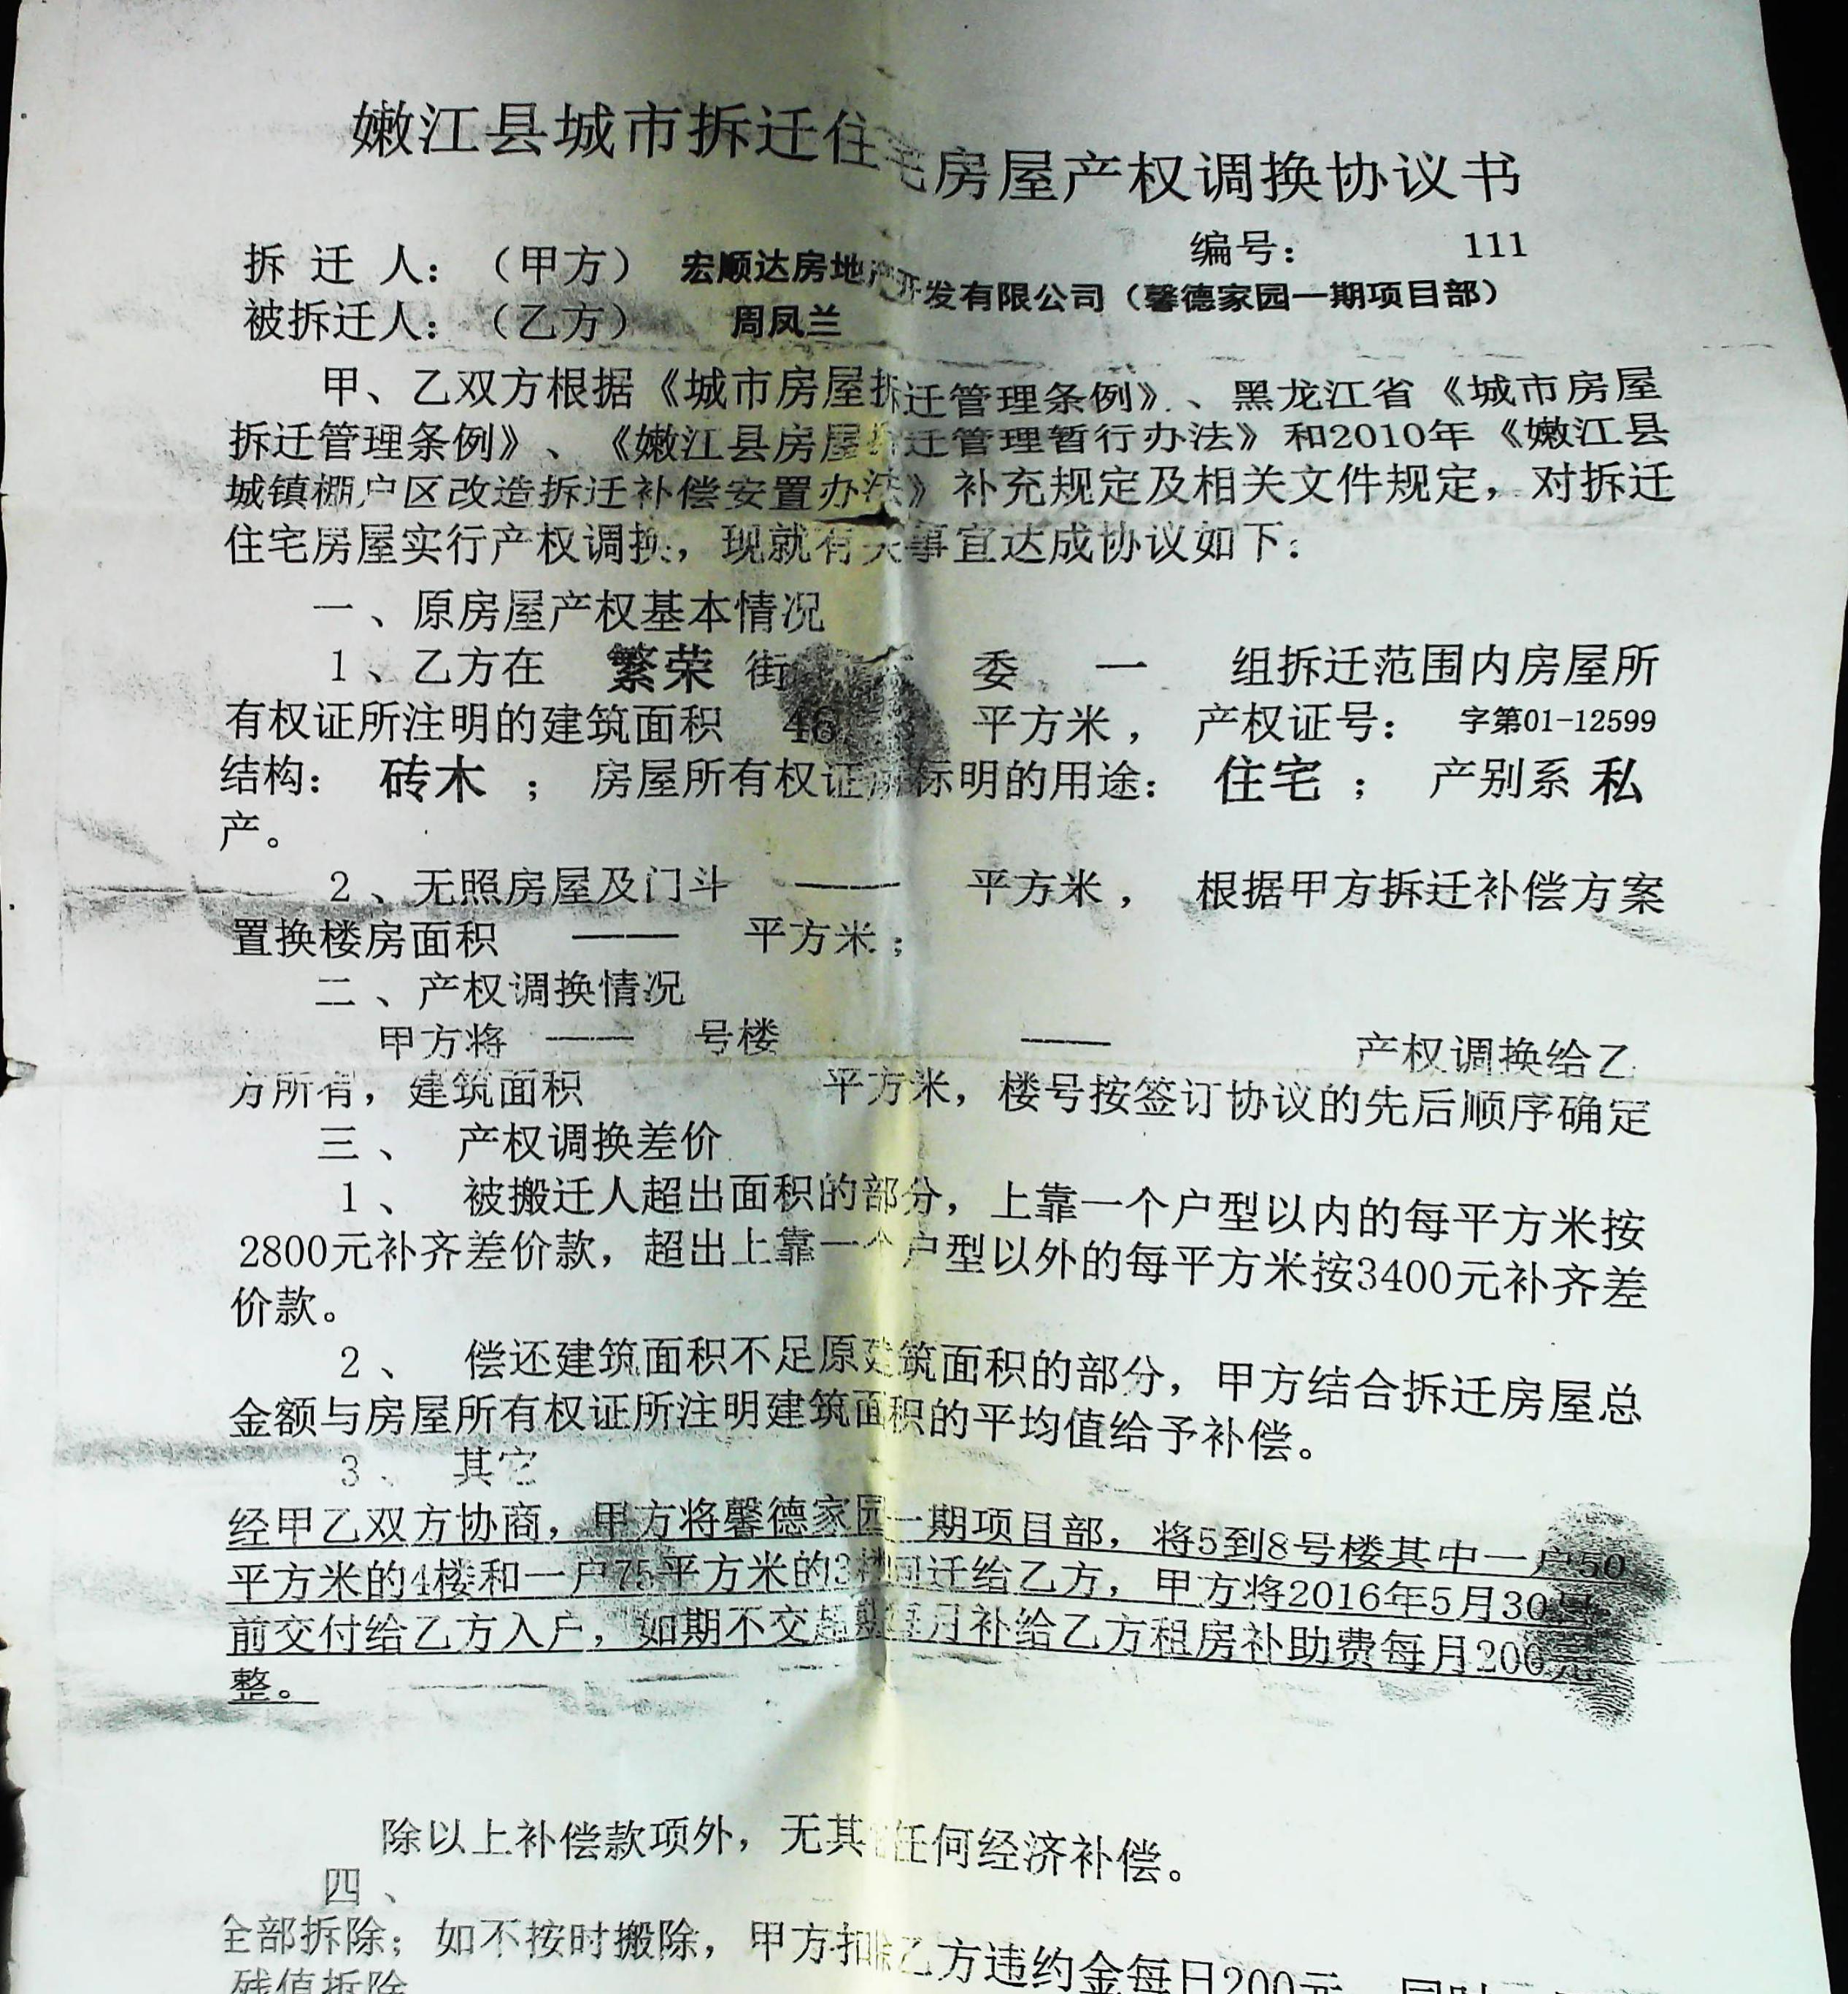 嫩江县城市拆迁住宅房屋产权调换协议书
编号： 111
拆 迁 人：（甲方） 宏顺达房地产开发有限公司（馨德家园一期项目部）
被拆迁人：（乙方） 周凤兰
甲、乙双方根据《城市房屋拆迁管理条例》、黑龙江省《城市房屋
拆迁管理条例》、《嫩江县房屋拆迁管理暂行办法》和2010年《嫩江县
城镇棚户区改造拆迁补偿安置办法》补充规定及相关文件规定，对拆迁
住宅房屋实行产权调换，现就有关事宜达成协议如下：
一、原房屋产权基本情况
1、乙方在 繁荣 街 委 一 组拆迁范围内房屋所
有权证所注明的建筑面积 46 平方米， 产权证号： 字第01-12599
结构： 砖木 ； 房屋所有权证所标明的用途： 住宅 ； 产别系 私
产。
2、无照房屋及门斗 —— 平方米， 根据甲方拆迁补偿方案
置换楼房面积 —— 平方米；
二、产权调换情况
甲方将 —— 号楼 —— 产权调换给乙
方所有，建筑面积 平方米，楼号按签订协议的先后顺序确定
三、 产权调换差价
1、 被搬迁人超出面积的部分，上靠一个户型以内的每平方米按
2800元补齐差价款，超出上靠一个户型以外的每平方米按3400元补齐差
价款。
2、 偿还建筑面积不足原建筑面积的部分，甲方结合拆迁房屋总
金额与房屋所有权证所注明建筑面积的平均值给予补偿。
3、 其它
经甲乙双方协商，甲方将馨德家园一期项目部，将5到8号楼其中一户50
平方米的4楼和一户75平方米的3楼回迁给乙方，甲方将2016年5月30号
前交付给乙方入户，如期不交超期每月补给乙方租房补助费每月200元
整。
除以上补偿款项外，无其它任何经济补偿。
四、
全部拆除；如不按时搬除，甲方扣除乙方违约金每日200元，同时
残值拆除